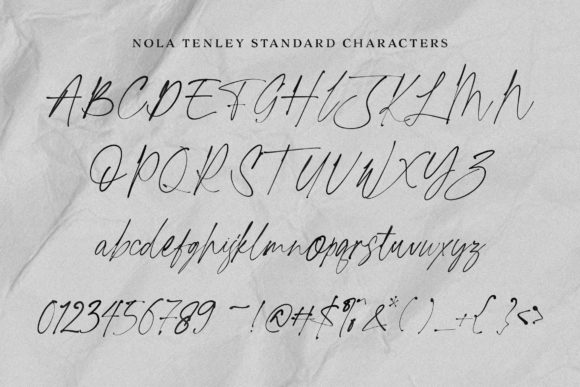 NOLA TENLEY STANDARD CHARACTERS
ABCDEFGHIJKLMN
OPQRSTUVWXYZ
abcdefghijklmnopqrstuvwxyz
0123456789 ~!@#$%^&*()_+{}<>